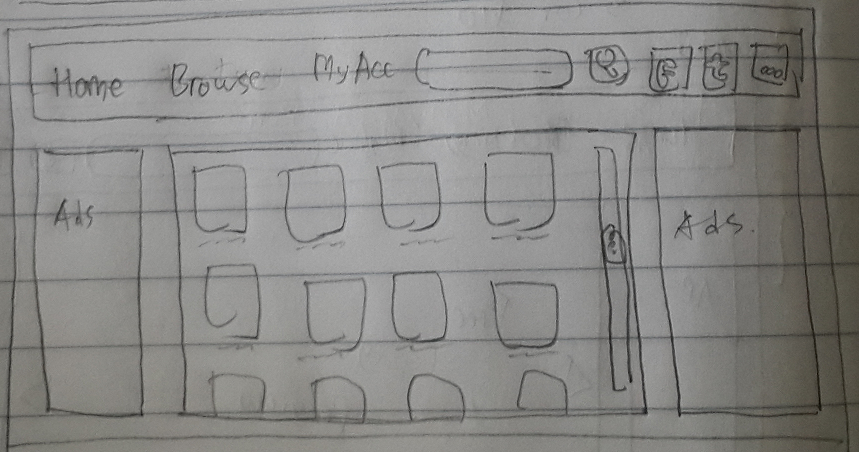 Home Browse My Acc
Ads
Ads.